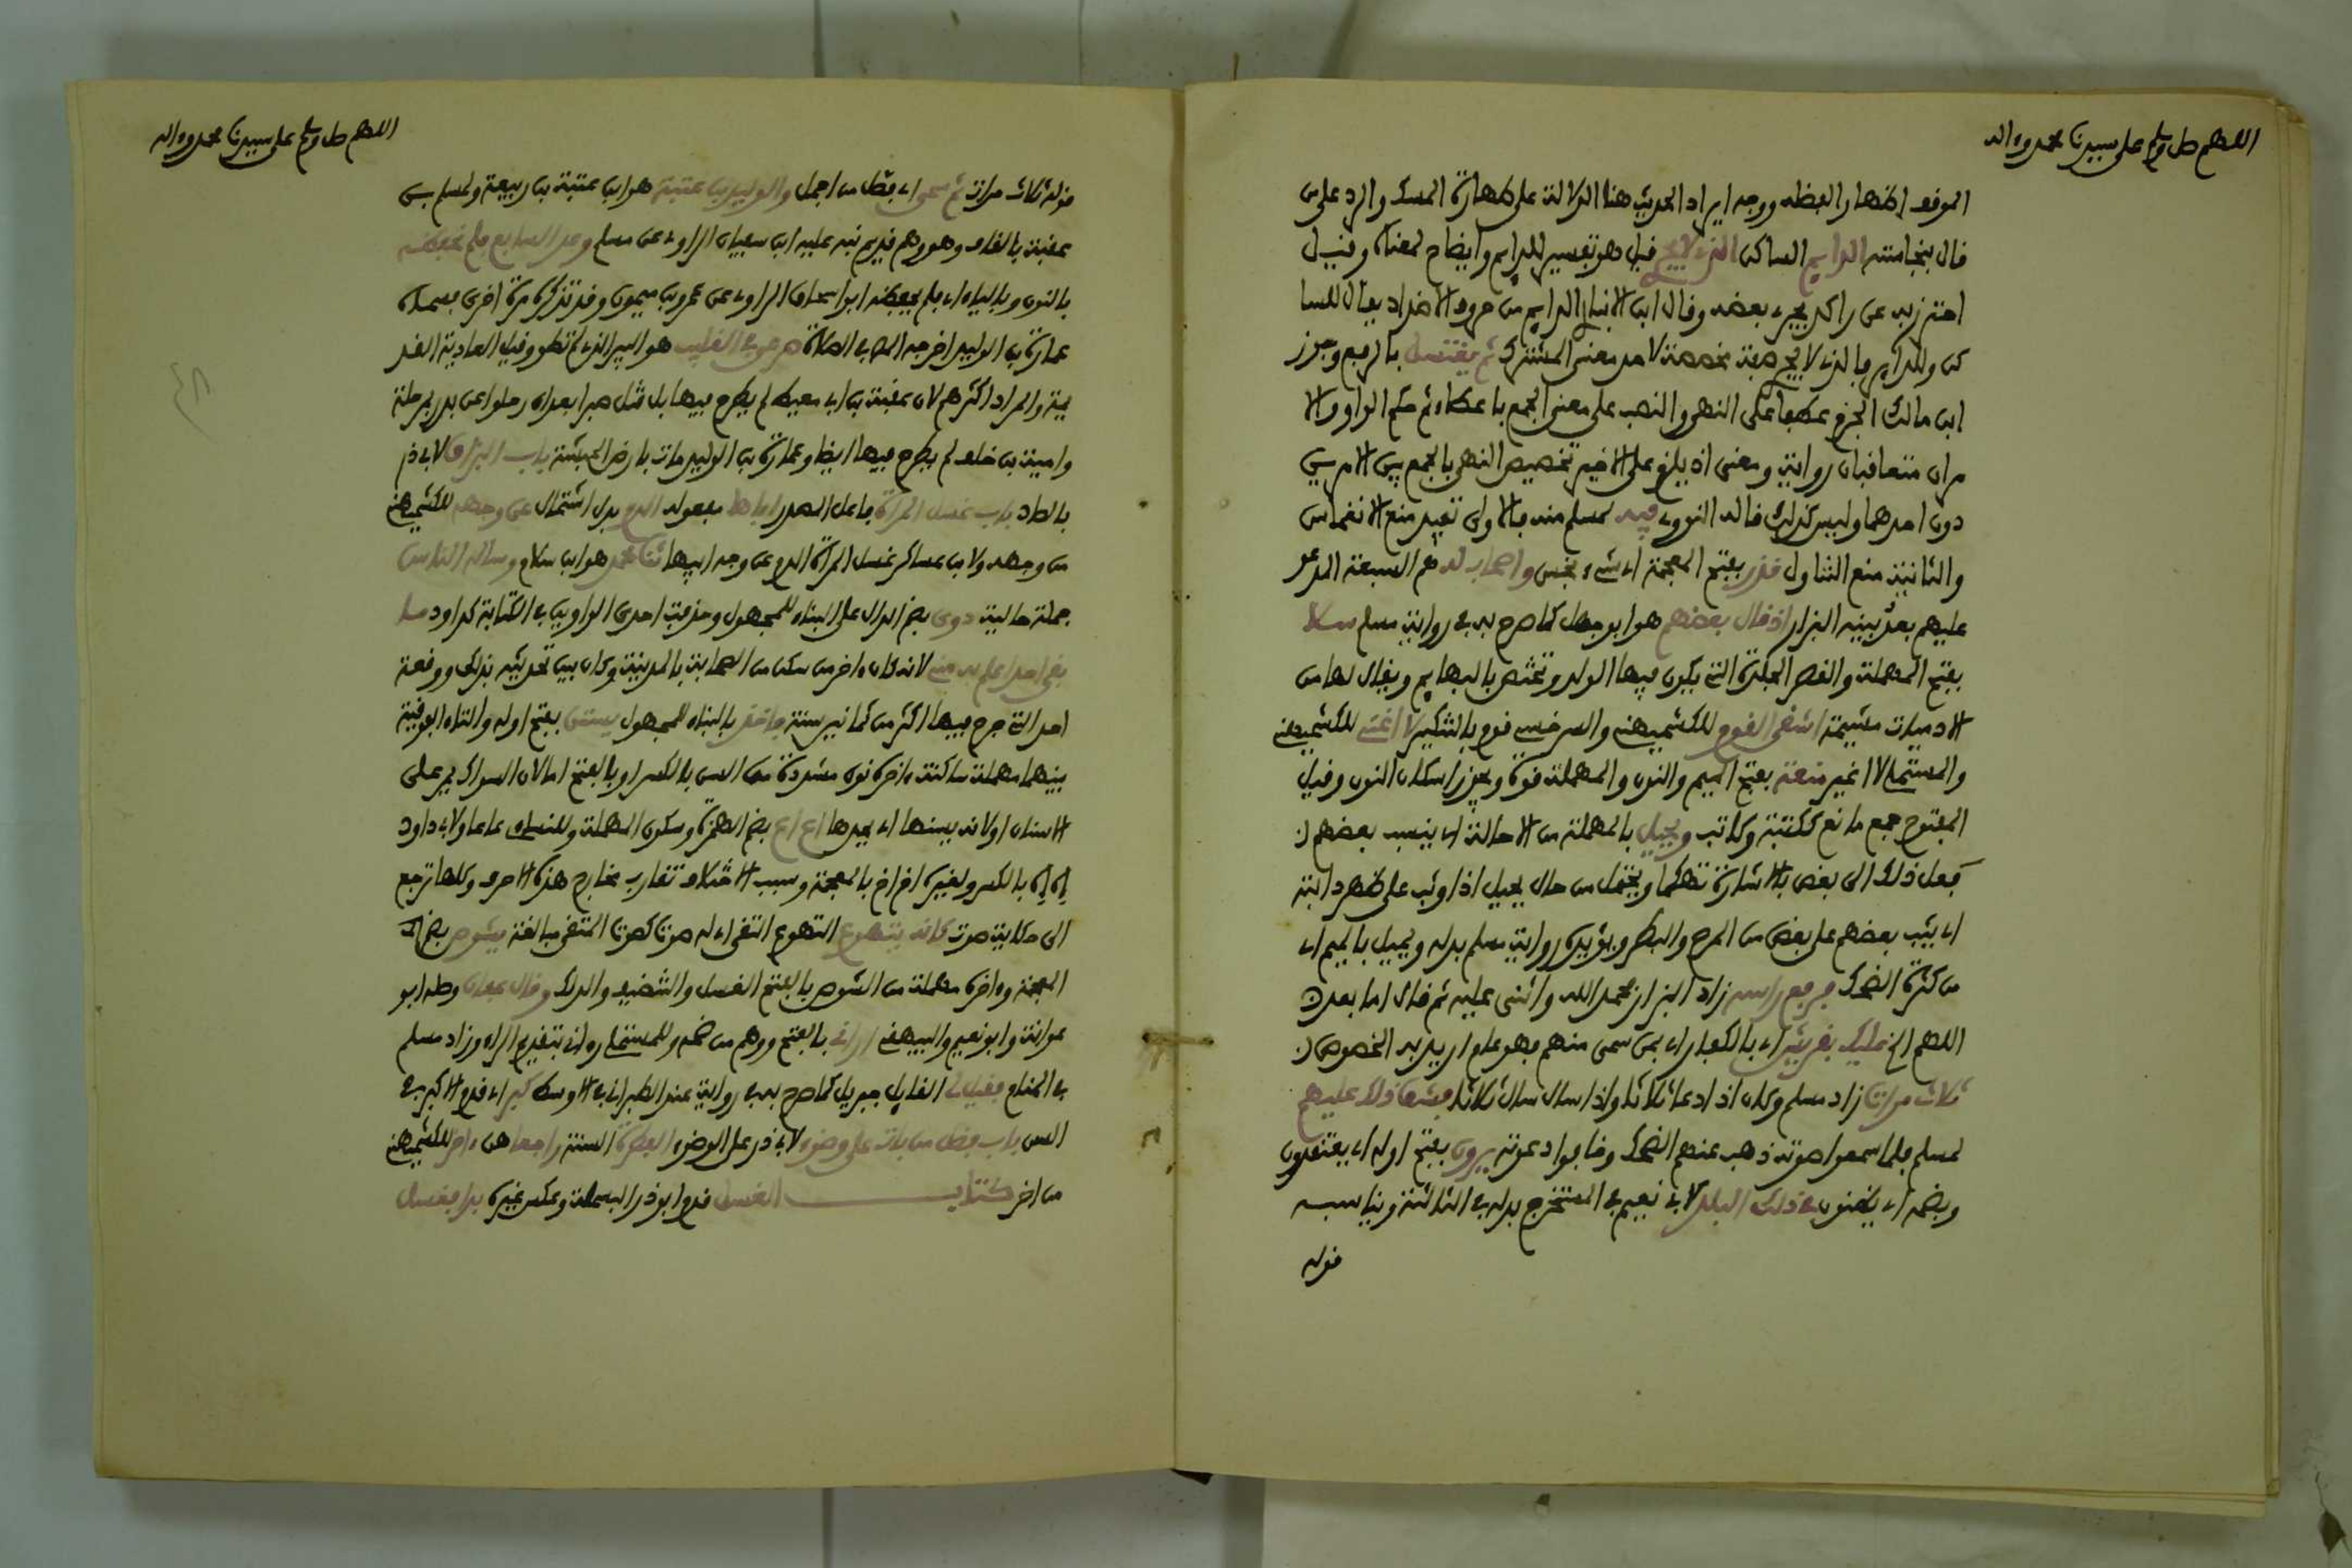 اللهم صل وسلم على سيدنا محمد وءاله
الموقع اظهار العظمه ووجه ايراد الحديث هنا الدلالة على طهارة المسك والرد على من
قال بنجاسته الدايم الساكن الذي لا يجري قيل هو تفسير للدايم وايضاح لمعناه وقيل
احترز به عن راكد يجري بعضه وقال ابن الانباري الدايم من حروف الاضداد يقال للسا
كن وللداير فالذي لا يجري صفة مخصصة لاحد معنيي المشترك ثم يغتسل بالرفع وجوز
ابن مالك الجزم عطفا على النهي والنصب على معنى الجمع باعطاء ثم حكم الواو والا
مران متعاقبان رواية ومعنى اذ يلزم على الاخير تخصيص النهي بالجمع بين الامرين
دون احدهما وليس كذلك قاله النووي فيه لمسلم منه فالاولى تفيد منع الانغماس
والثانية منع التناول قذر بفتح المعجمة اي شيء نجس واصحاب له هم السبعة المدعو
عليهم بعد بينه البزار اذ قال بعضهم هو ابو جهل كما صرح به في رواية مسلم سلا
بفتح المهملة والقصر الجلدة التي يكون فيها الولد وتختص بالبهايم ويقال لها من
الادميات مشيمة اشقى القوم للكشميهني والسرخسي قوم بالتنكير لا اغني للكشميهني
والمستملي لا اغير منعة بفتح الميم والنون والمهملة قوة ويجوز اسكان النون وقيل
المفتوح جمع مانع ككتبة وكاتب ويحيل بالمهملة من الاحالة اي ينسب بعضهم
فعل ذلك الى بعض بالاشارة تهكما ويحتمل من حال يحيل اذا وثب على ظهر دابته
اي يثب بعضهم على بعض من المرح والبطر ويؤيده رواية مسلم بدله ويميل بالميم اي
من كثرة الضحك فرفع راسه زاد البزار فحمد الله واثنى عليه ثم قال اما بعد
اللهم الخ عليك بقريش اي بالكفار اي بمن سمى منهم فهو عام اريد به الخصوص
ثلاث مرات زاد مسلم وكان اذا دعا ثلاثا واذا سال سال ثلاثا فشق ذلك عليهم
لمسلم فلما سمعوا صوته ذهب عنهم الضحك وخافوا دعوته يرون بفتح اوله اي يعتقدون
وبضمه اي يظنون في ذلك البلد لابي نعيم في المستخرج بدله في الثالثة ويناسبه
قوله
اللهم صل وسلم على سيدنا محمد وءاله
قوله ثلاث مرات ثم سمى اي فصل من اجمل والوليد بن عتبة هو ابن عتبة بن ربيعة ولمسلم بن
عقبة بالقاف وهو وهم قديم نبه عليه ابن سفيان الراوي عن مسلم وعد السابع فلم نحفظه
بالنون وبالياء اي فلم يحفظه ابو اسحاق الراوي عن عمرو بن ميمون وقد تذكره مرة اخرى فسماه
عمارة بن الوليد اخرجه المص في الصلاة صرعى في القليب هو البير التي لم تطو وقيل العادية القد
يمة والمراد اكثرهم لان عقبة بن ابي معيط لم يطرح فيها بل قتل صبرا بعد ان رحلوا عن بدر بمرحلة
وامية بن خلف لم يطرح فيها ايضا وعمارة بن الوليد مات بارض الحبشة باب البزاق لابي ذر
بالصاد باب غسل المراة فاعل المصدر اباها مفعوله الدم بدل اشتمال عن وجهه للكشميهني
من وجهه ولابن عساكر غسل المراة الدم عن وجه ابيها ثنا محمد هو ابن سلام وساله الناس
جملة حالية دوي بضم الدال على البناء للمجهول وحذفت احدى الواوين في الكتابة كداود ما
بقي احد اعلم به مني لانه كان ءاخر من سكن من الصحابة بالمدينة وكان بين تحديثه بذلك ووقعة
احد التي جرح فيها اكثر من ثمانين سنة فاخذ بالبناء للمجهول يستن بفتح اوله والتاء الفوقية
بينهما مهملة ساكنة ءاخره نون مشددة من السن بالكسر او بالفتح اما لان السواك يمر على
الاسنان او لانه يسنها اي يحدها اع اع بضم الهمزة وسكون المهملة وللنساءي عاعا ولابي داود
اه اه بالكسر ولغيره اخ اخ بالمعجمة وسبب الاختلاف تقارب مخارج هذه الاحرف وكلها ترجع
الى حكاية صوت كانه يتهوع التهوع التقي اي له صوت كصوت المتقي مبالغة يشوص بضم
المعجمة وءاخره مهملة من الشوص بالفتح الغسل والتنضيف والدلك وقال عفان وصله ابو
عوانة وابو نعيم والبيهقي اراني بالفتح ووهم من ضم وللمستملي رءاني بتقديم الراء وزاد مسلم
في المنام فقيل لي القايل جبريل كما صرح به في رواية عند الطبراني في الاوسط كبر اي قدم الاكبر في
السن باب فضل من بات على وضوء لابي ذر على الوضوء الفطرة السنة واجعلهن ءاخر للكشميهني
من اخر كتاب الغسل قدم ابو ذر البسملة وعكس غيره بدا فغسل